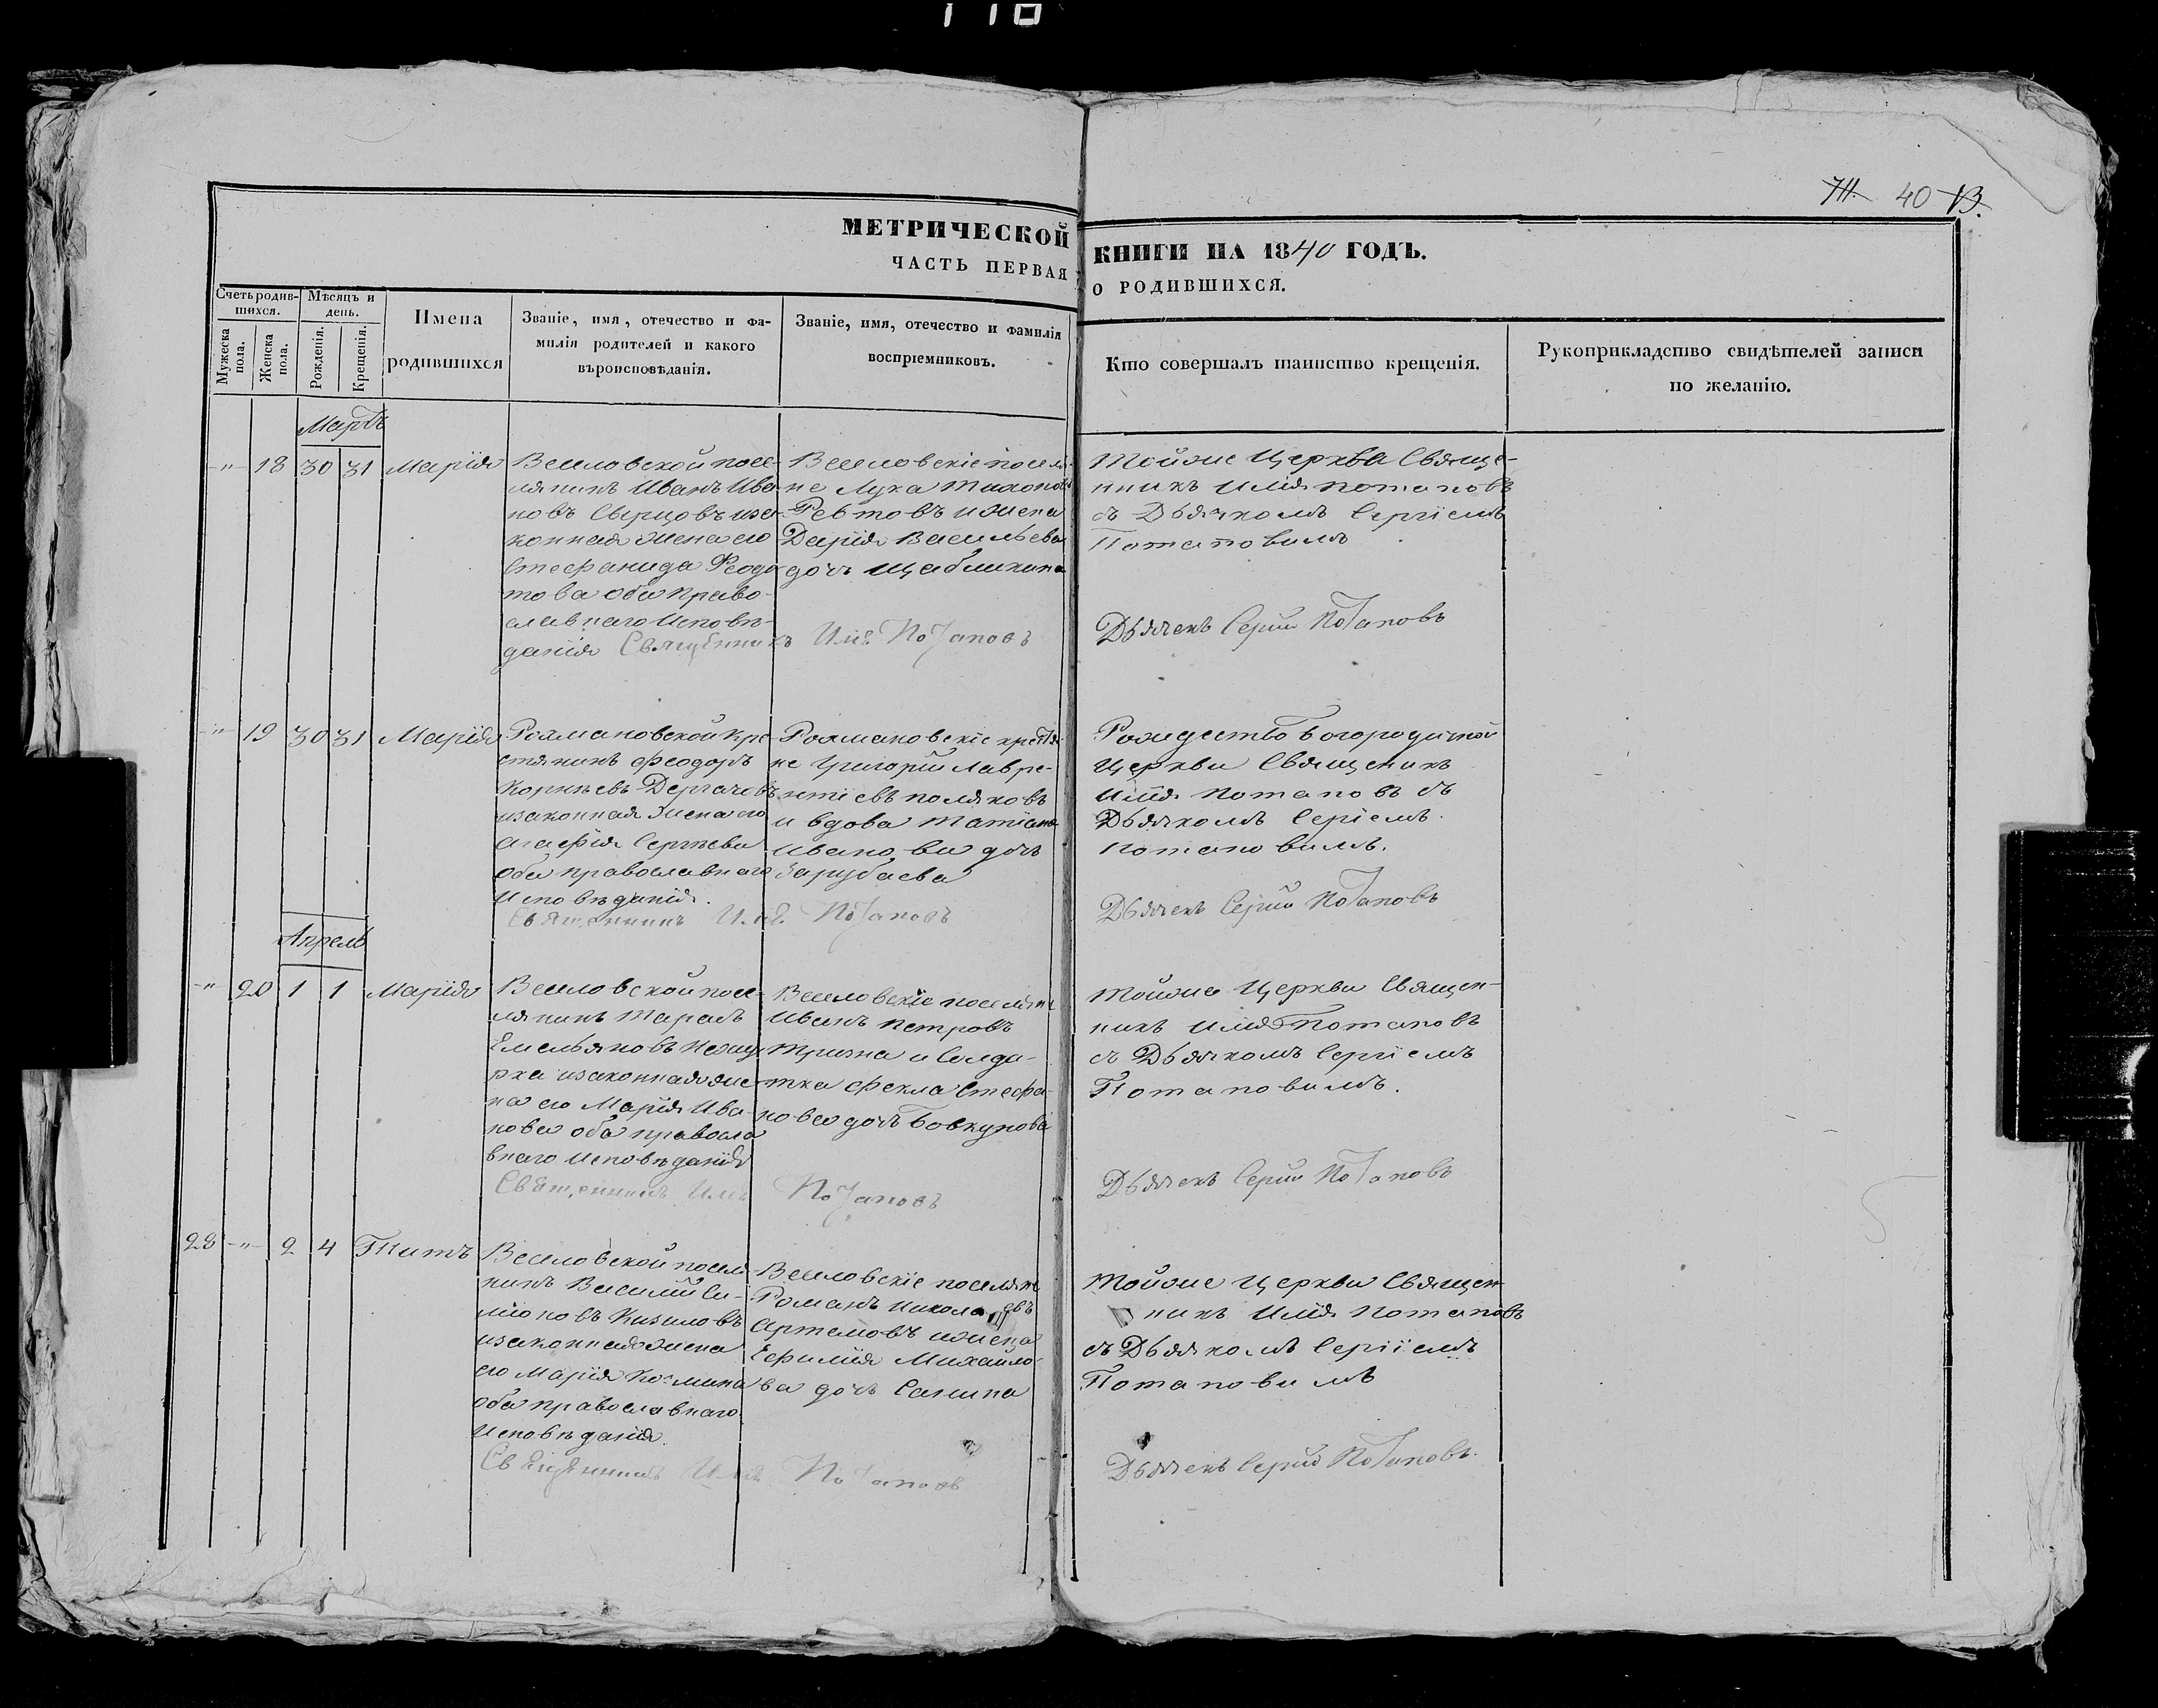 118
40
МЕТРИЧЕСКОЙ КНИГИ НА 1840 ГОДЪ.
ЧАСТЬ ПЕРВАЯ О РОДИВШИХСЯ.
Счетъ родив-
шихся.
Мужеска
пола.
Женска
пола.
Мѣсяцъ и
день.
Рожденія.
Крещенія.
Имена
родившихся
Званіе, имя, отечество и фа-
милія родителей и какого
вѣроисповѣданія.
Званіе, имя, отечество и фамилія
воспріемниковъ.
Кто совершалъ таинство крещенія.
Рукоприкладство свидѣтелей записи
по желанію.
Мартъ
-"- 18 30 31 Марія
Веселовской посе-
лянинъ Иванъ Ива-
новъ Свирцовъ иза-
конная жена его
Стефанида Феодо
това оба право-
славнаго исповѣ-
данія
Веселовскіе поселя-
не Лука Тихоновъ
Ревтовъ ижена
Дарія Васильева
дочь Щабликина
Тойже Церкви Свяще-
нникъ Илія Потаповъ
съ Дьячкомъ Сергіемъ
Потаповымъ
Священникъ Илія Потаповъ
Дьячекъ Сергій Потаповъ
-"- 19 30 31 Марія
Рахмановской Кре-
стянинъ Феодоръ
Корнѣевъ Дергачовъ
изаконная жена его
Агафія Сергѣева
оба православнаго
Исповѣданія.
Рахмановскіе крестья
не Григорій Лавре-
нтіевъ Поляковъ
и вдова Татіана
Иванова дочь
Зарубаева
Рождество Богородичной
Церкви Священикъ
Илія Потаповъ съ
Дьячкомъ Сергіемъ
Потаповымъ.
Священникъ Илія Потаповъ
Дьячекъ Сергій Потаповъ
Апрель
-"- 20 1 1 Марія
Веселовской посе-
лянинъ Тарасъ
Емельяновъ
изаконная же-
на его Марія Ива-
нова оба правосла
внаго Исповѣданія
Веселовскіе поселяне
Иванъ Петровъ
Тризна и Солда-
тка Фекла Стефа-
нова дочь Бовкунова
Тойже Церкви Священ-
никъ Илія Потаповъ
съ Дьячкомъ Сергіемъ
Потаповымъ.
Священникъ Илія Потаповъ
Дьячекъ Сергій Потаповъ
28 -"- 2 4 Титъ
Веселовской поселя-
нинъ Василій Си-
міоновъ Кизиловъ
изаконная жена
его Марія Козмина
оба православнаго
Исповѣданія.
Веселовскіе поселяне
Романъ Николаевъ
Артемовъ ижена
Ефимія Михайло-
ва дочь Санина
Тойже Церкви Священ-
никъ Илія Потаповъ
съ Дьячкомъ Сергіемъ
Потаповымъ
Священникъ Илія Потаповъ
Дьячекъ Сергій Потаповъ.